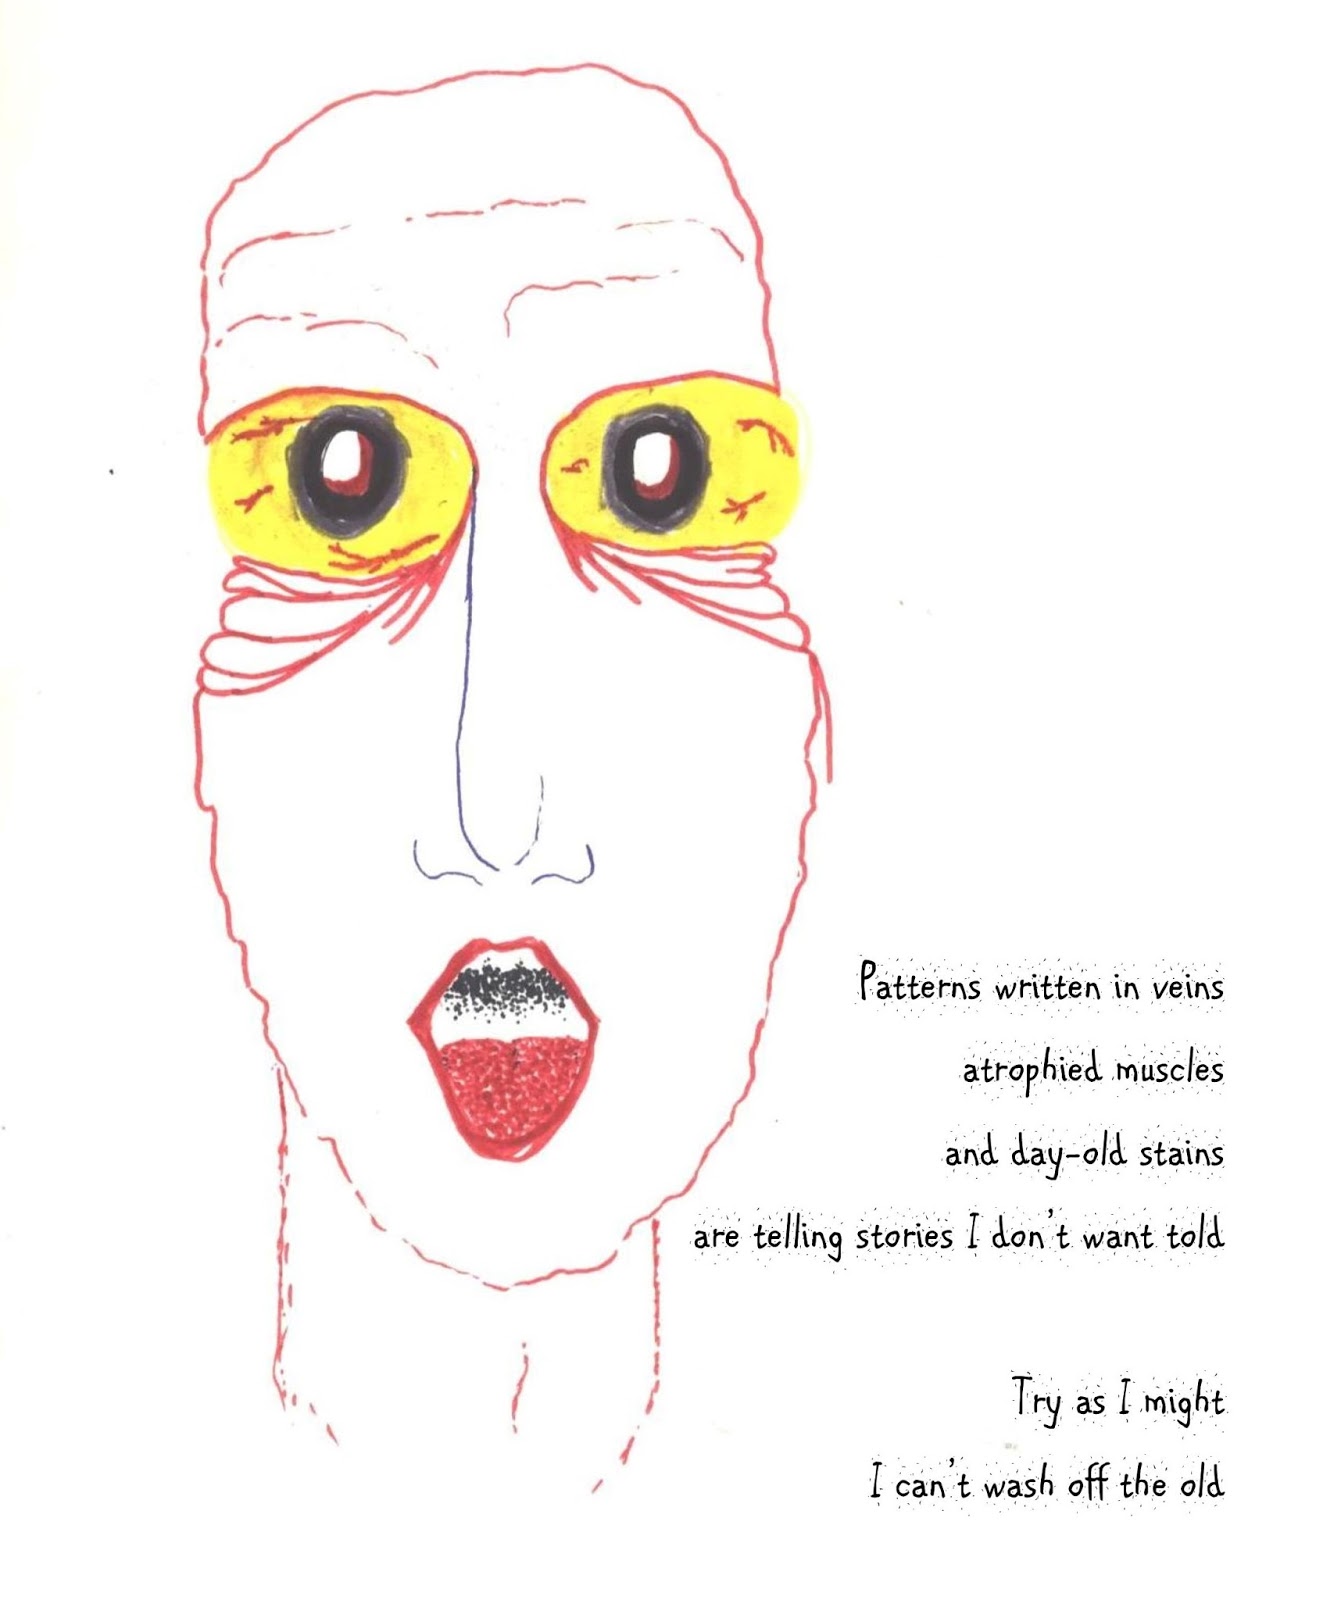 Patterns written in veins
atrophied muscles
and day-old stains
are telling stories I don't want told
Try as I might
I can't wash off the old